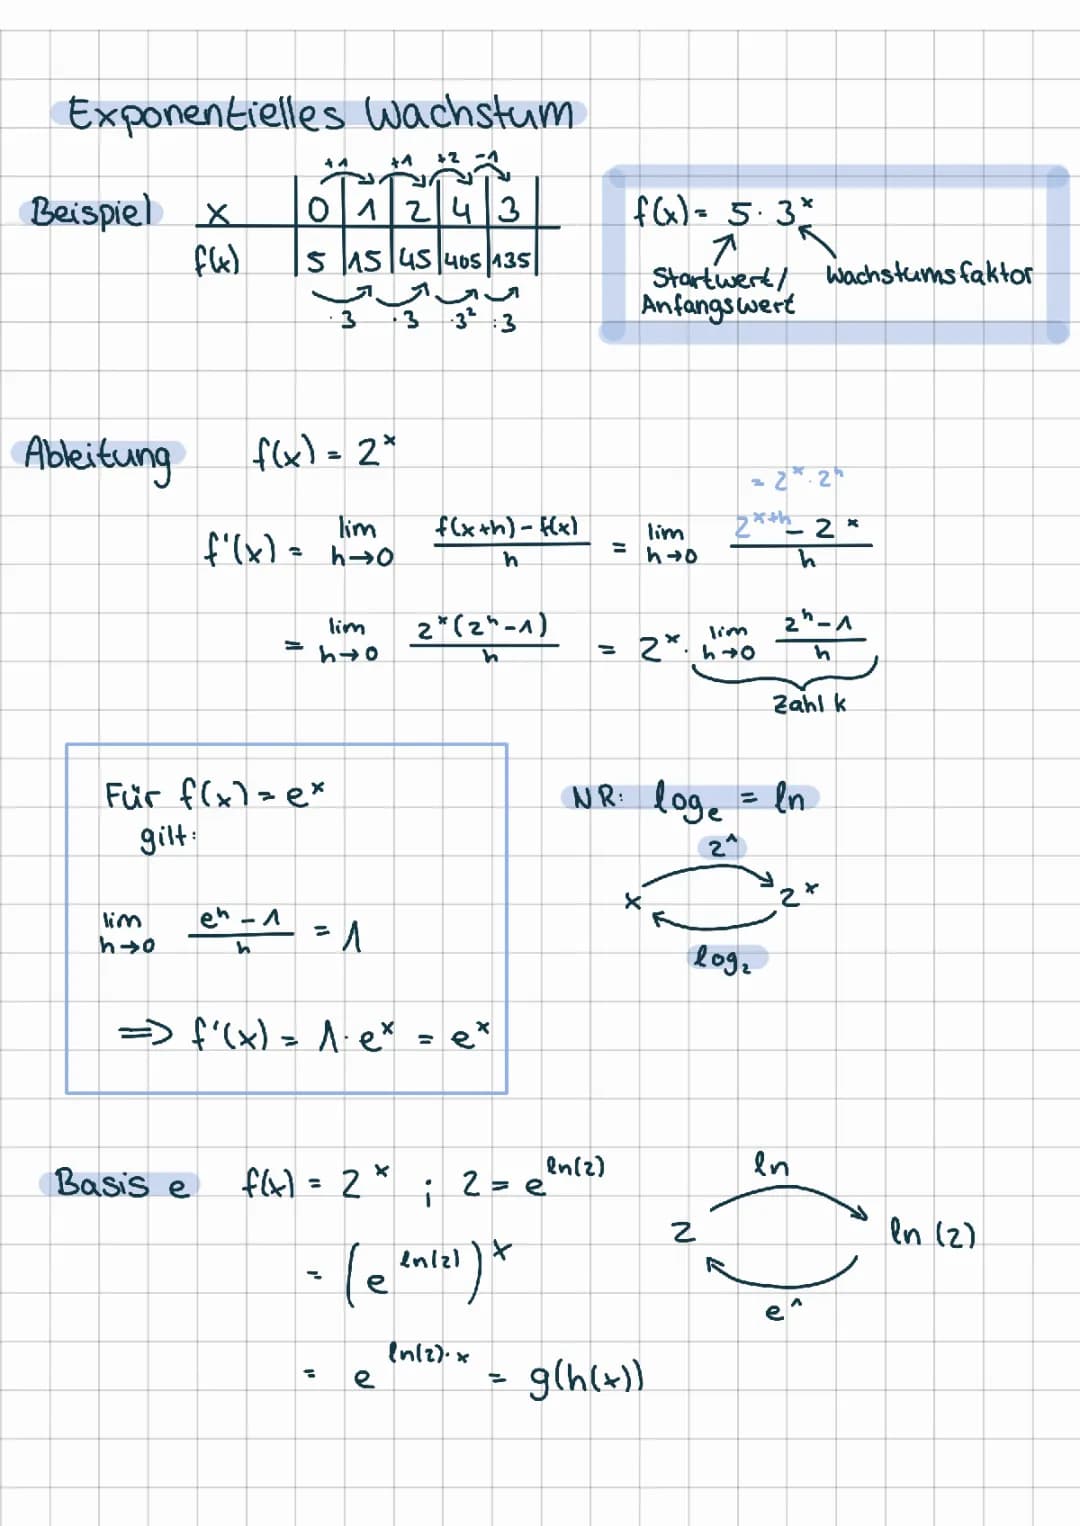 Exponentielles Wachstum
+1 +1 +2 -1
Beispiel x 0 1 2 4 3
f(x) 5 15 45 405 135
·3 ·3 ·3² :3
f(x) = 5 · 3ˣ
Startwert/ Wachstumsfaktor
Anfangswert
Ableitung f(x) = 2ˣ
= 2ˣ · 2ʰ
f'(x) = lim h→0 (f(x+h) - f(x))/h = lim h→0 (2ˣ⁺ʰ - 2ˣ)/h
= lim h→0 (2ˣ(2ʰ-1))/h = 2ˣ · lim h→0 (2ʰ-1)/h
Zahl k
Für f(x) = eˣ
gilt:
lim h→0 (eʰ - 1)/h = 1
⇒ f'(x) = 1 · eˣ = eˣ
NR: logₑ = ln
2^
x 2ˣ
log₂
Basis e f(x) = 2ˣ ; 2 = e^ln(2)
= (e^ln(2))ˣ
= e^ln(2)·x = g(h(x))
ln
2 ln (2)
e^